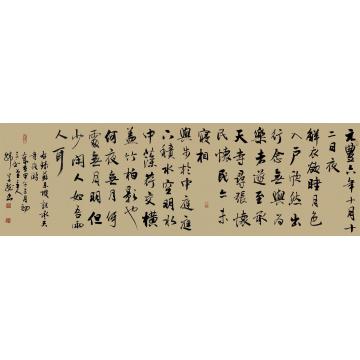 元豐六年十月十
二日夜
解衣欲睡月色
入户欣然出
行念無與為
樂者遂至承
天寺尋張懷
民懷民亦未
寢相
與步於中庭庭
下積水空明水
中藻荇交橫
蓋竹柏影也
何夜無月何
處無月明但
少閑人如吾兩
人耳
蘇東坡記承天
寺夜游